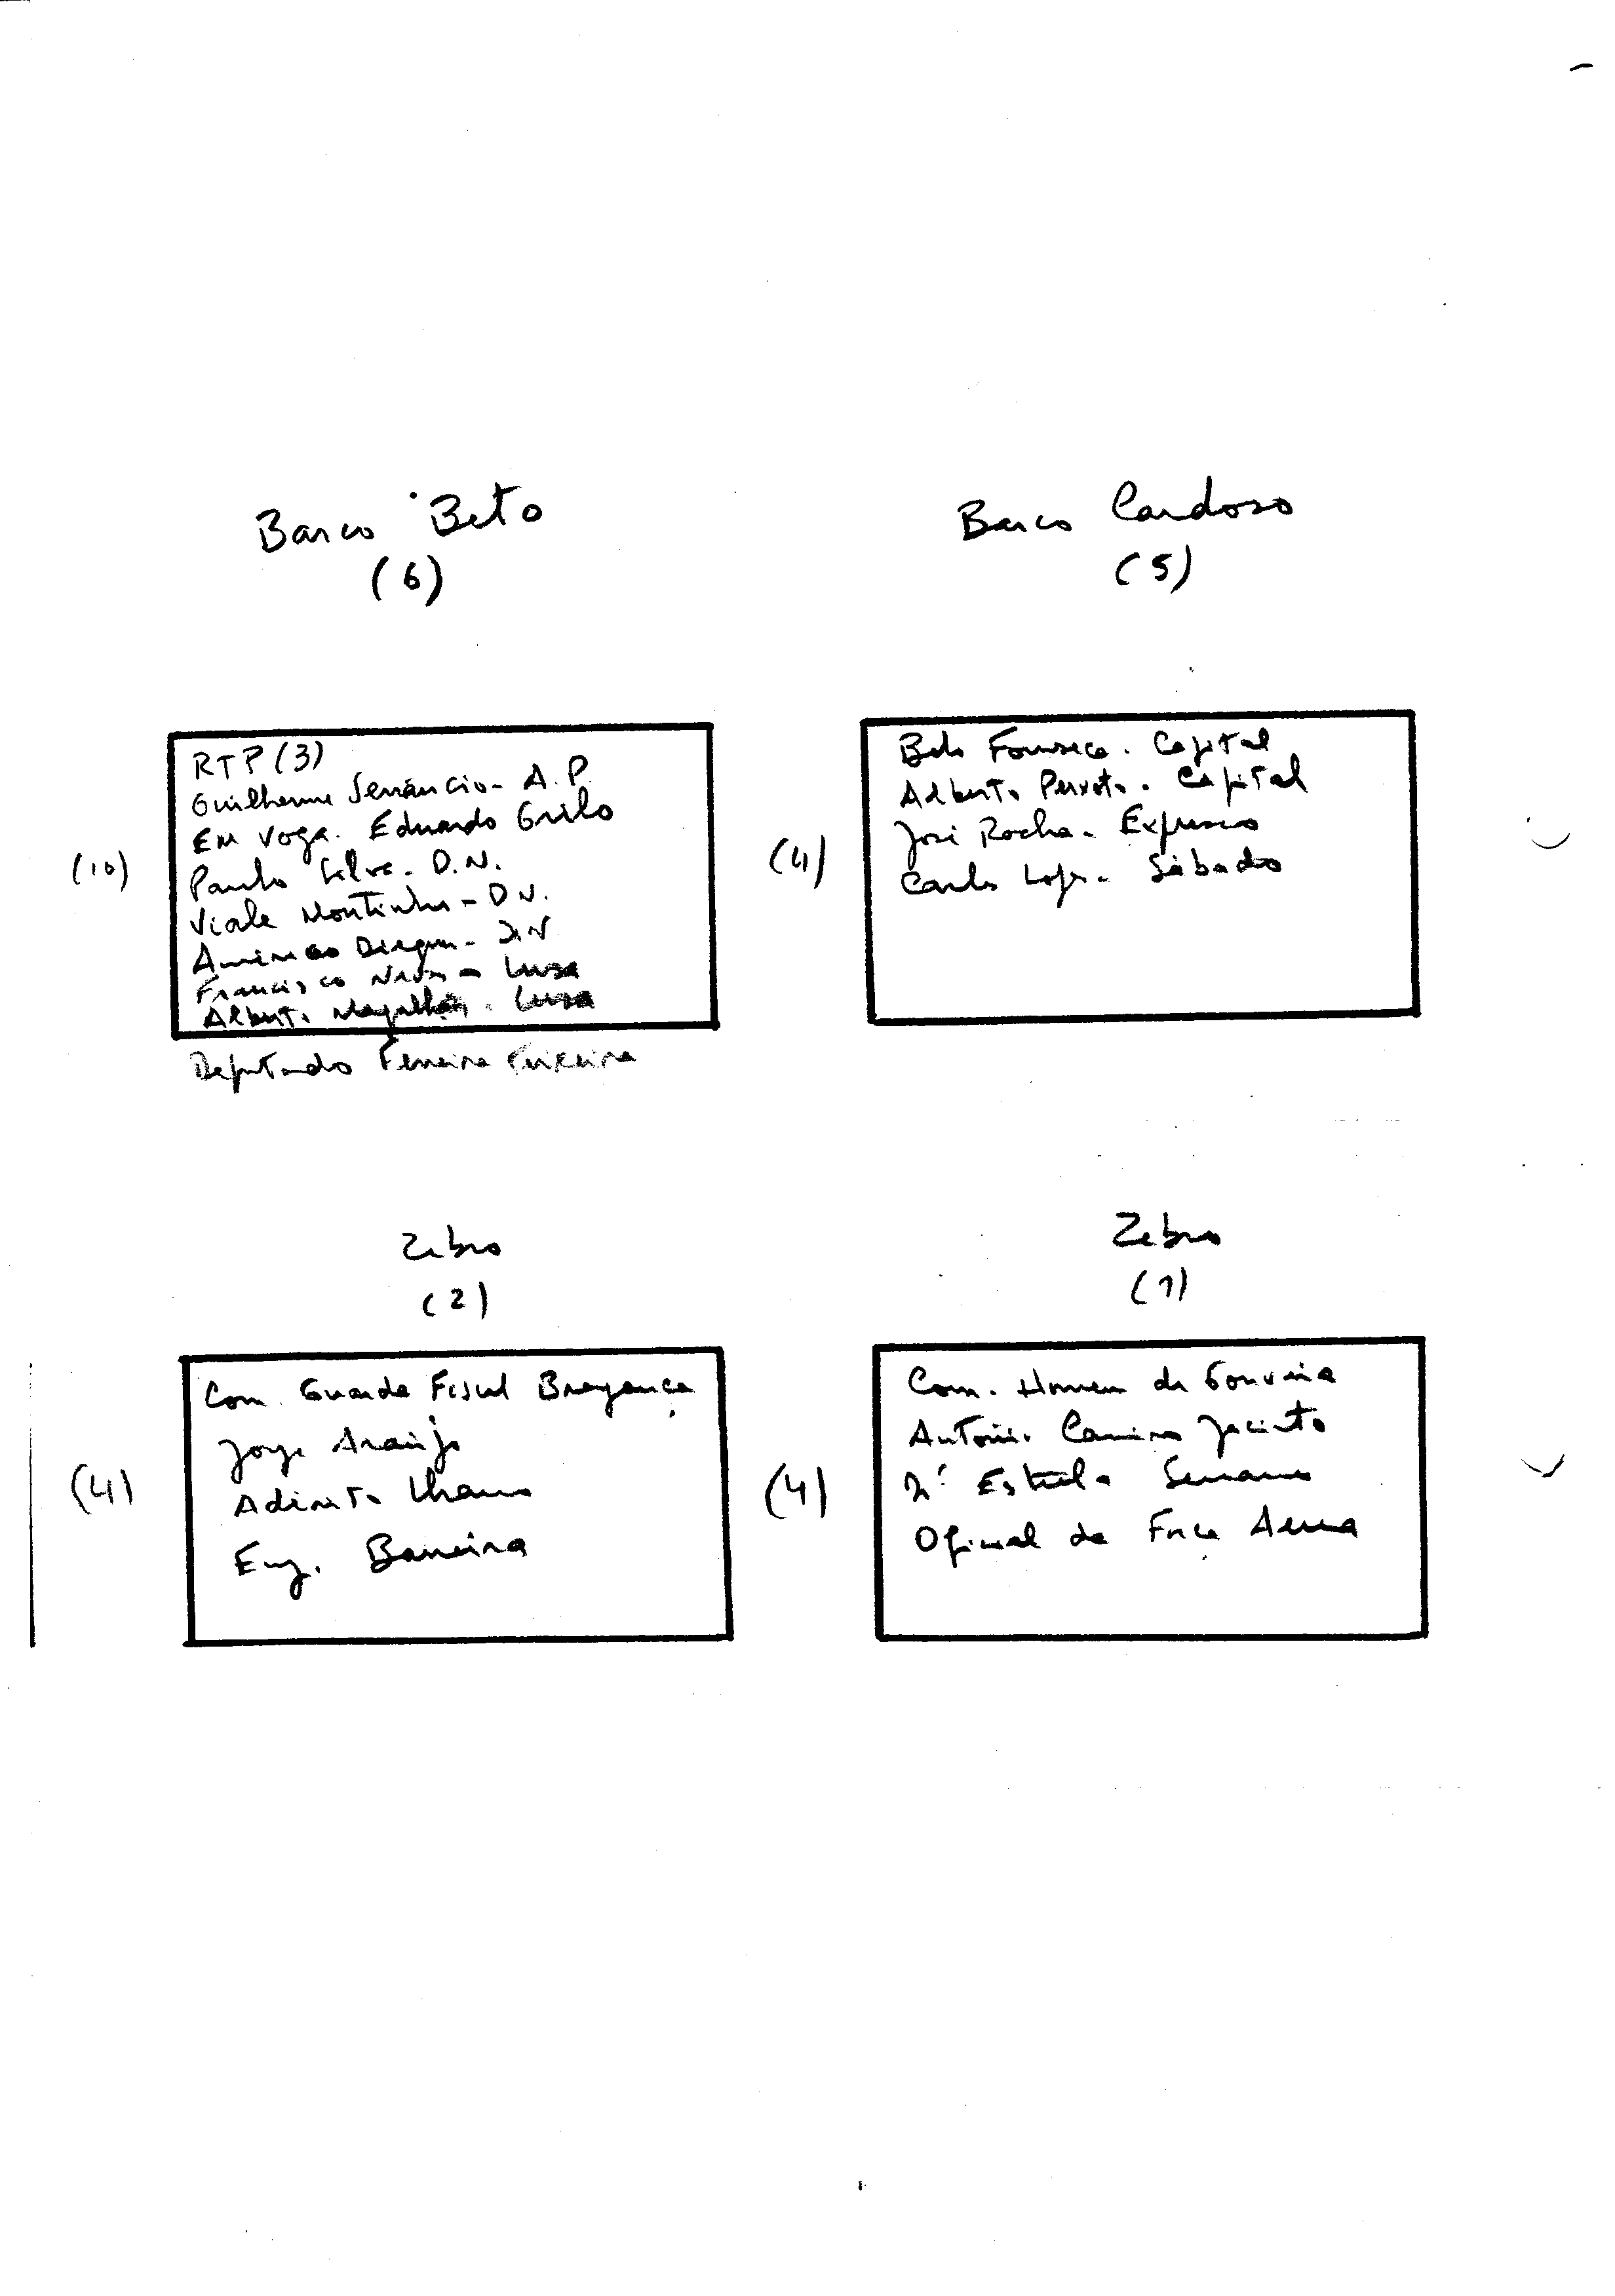 Barco Beto
(6)
(10)
RTP (3)
Guilherme Venâncio - A.P.
Em Voga. Eduardo Grilo
Paulo Silva - D.N.
Viale Moutinho - D N.
Américo - J N
Francisco Neves - Lusa
Alberto Magalhães - Lusa
Deputado Ferreira Teixeira
Barco Cardoso
(5)
(4)
Fonseca. Capital
Alberto Peixoto. Capital
José Rocha - Expresso
Carlos Lopes - Sábado
Zebro
(2)
(4)
Com. Guarda Fiscal Bragança
Jorge Araújo
Adérito
Eng. Barreira
Zebro
(1)
(4)
Com. Homem de Gouveia
António Jacinto
Estrela Serrano
Oficial da Força Aérea